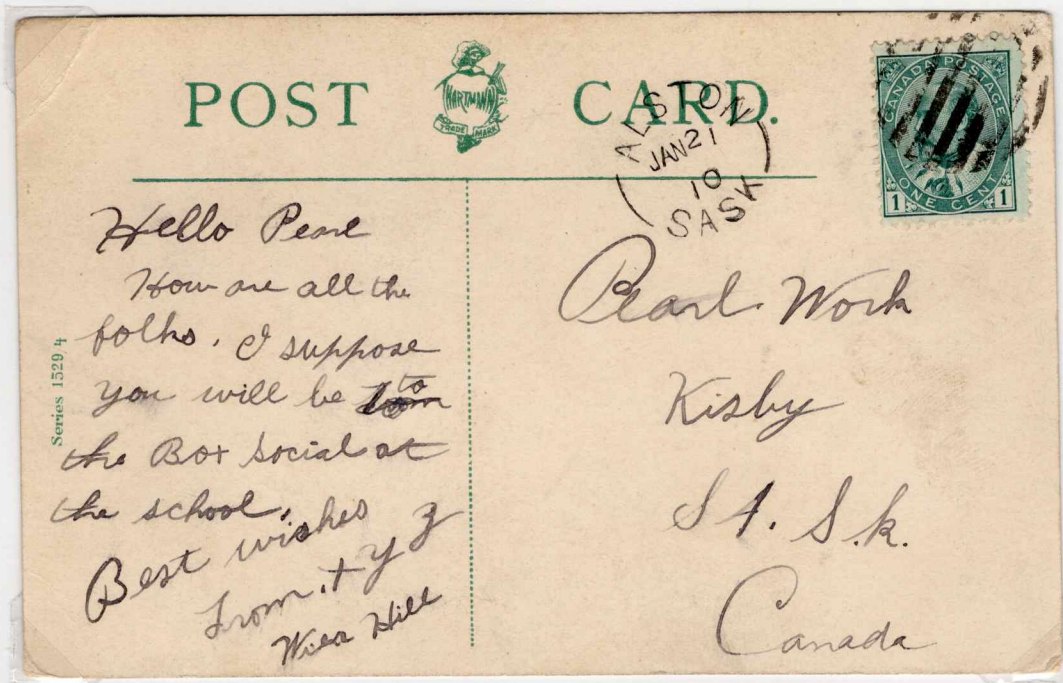 POST CARD.
HARTMANN
TRADE MARK
ALSTON
JAN 21
10
SASK
CANADA POSTAGE
ONE CENT
1 1
Series 1529 4
Hello Pearl
How are all the
folks. I suppose
you will be to
the Box social at
the school.
Best wishes
From . x y z
Hill
Pearl Work
Kisby
S.k.
Canada